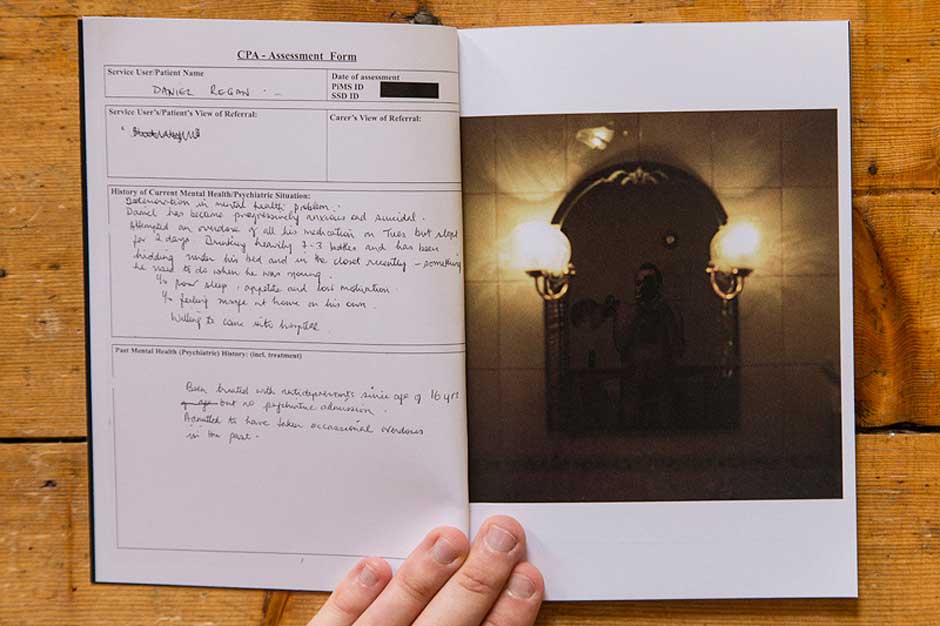 CPA - Assessment Form
Service User/Patient Name
DANIEL REGAN
Date of assessment
PiMS ID
SSD ID
Service User's/Patient's View of Referral:
Carer's View of Referral:
History of Current Mental Health/Psychiatric Situation:
Deterioration in mental health problem.
Daniel has become progressively anxious and suicidal.
Attempted an overdose of all his medication on Tues but slept
for 2 days. Drinking heavily 2-3 bottles and has been
hidding under his bed and in the closet recently - something
he used to do when he was young.
poor sleep, appetite and lost motivation.
feeling unsafe at home on his own.
Willing to come into hospital.
Past Mental Health (Psychiatric) History: (incl. treatment)
Been treated with antidepressants since age of 16 yrs
but no psychiatric admission.
Admitted to have taken occassional overdoses
in the past.